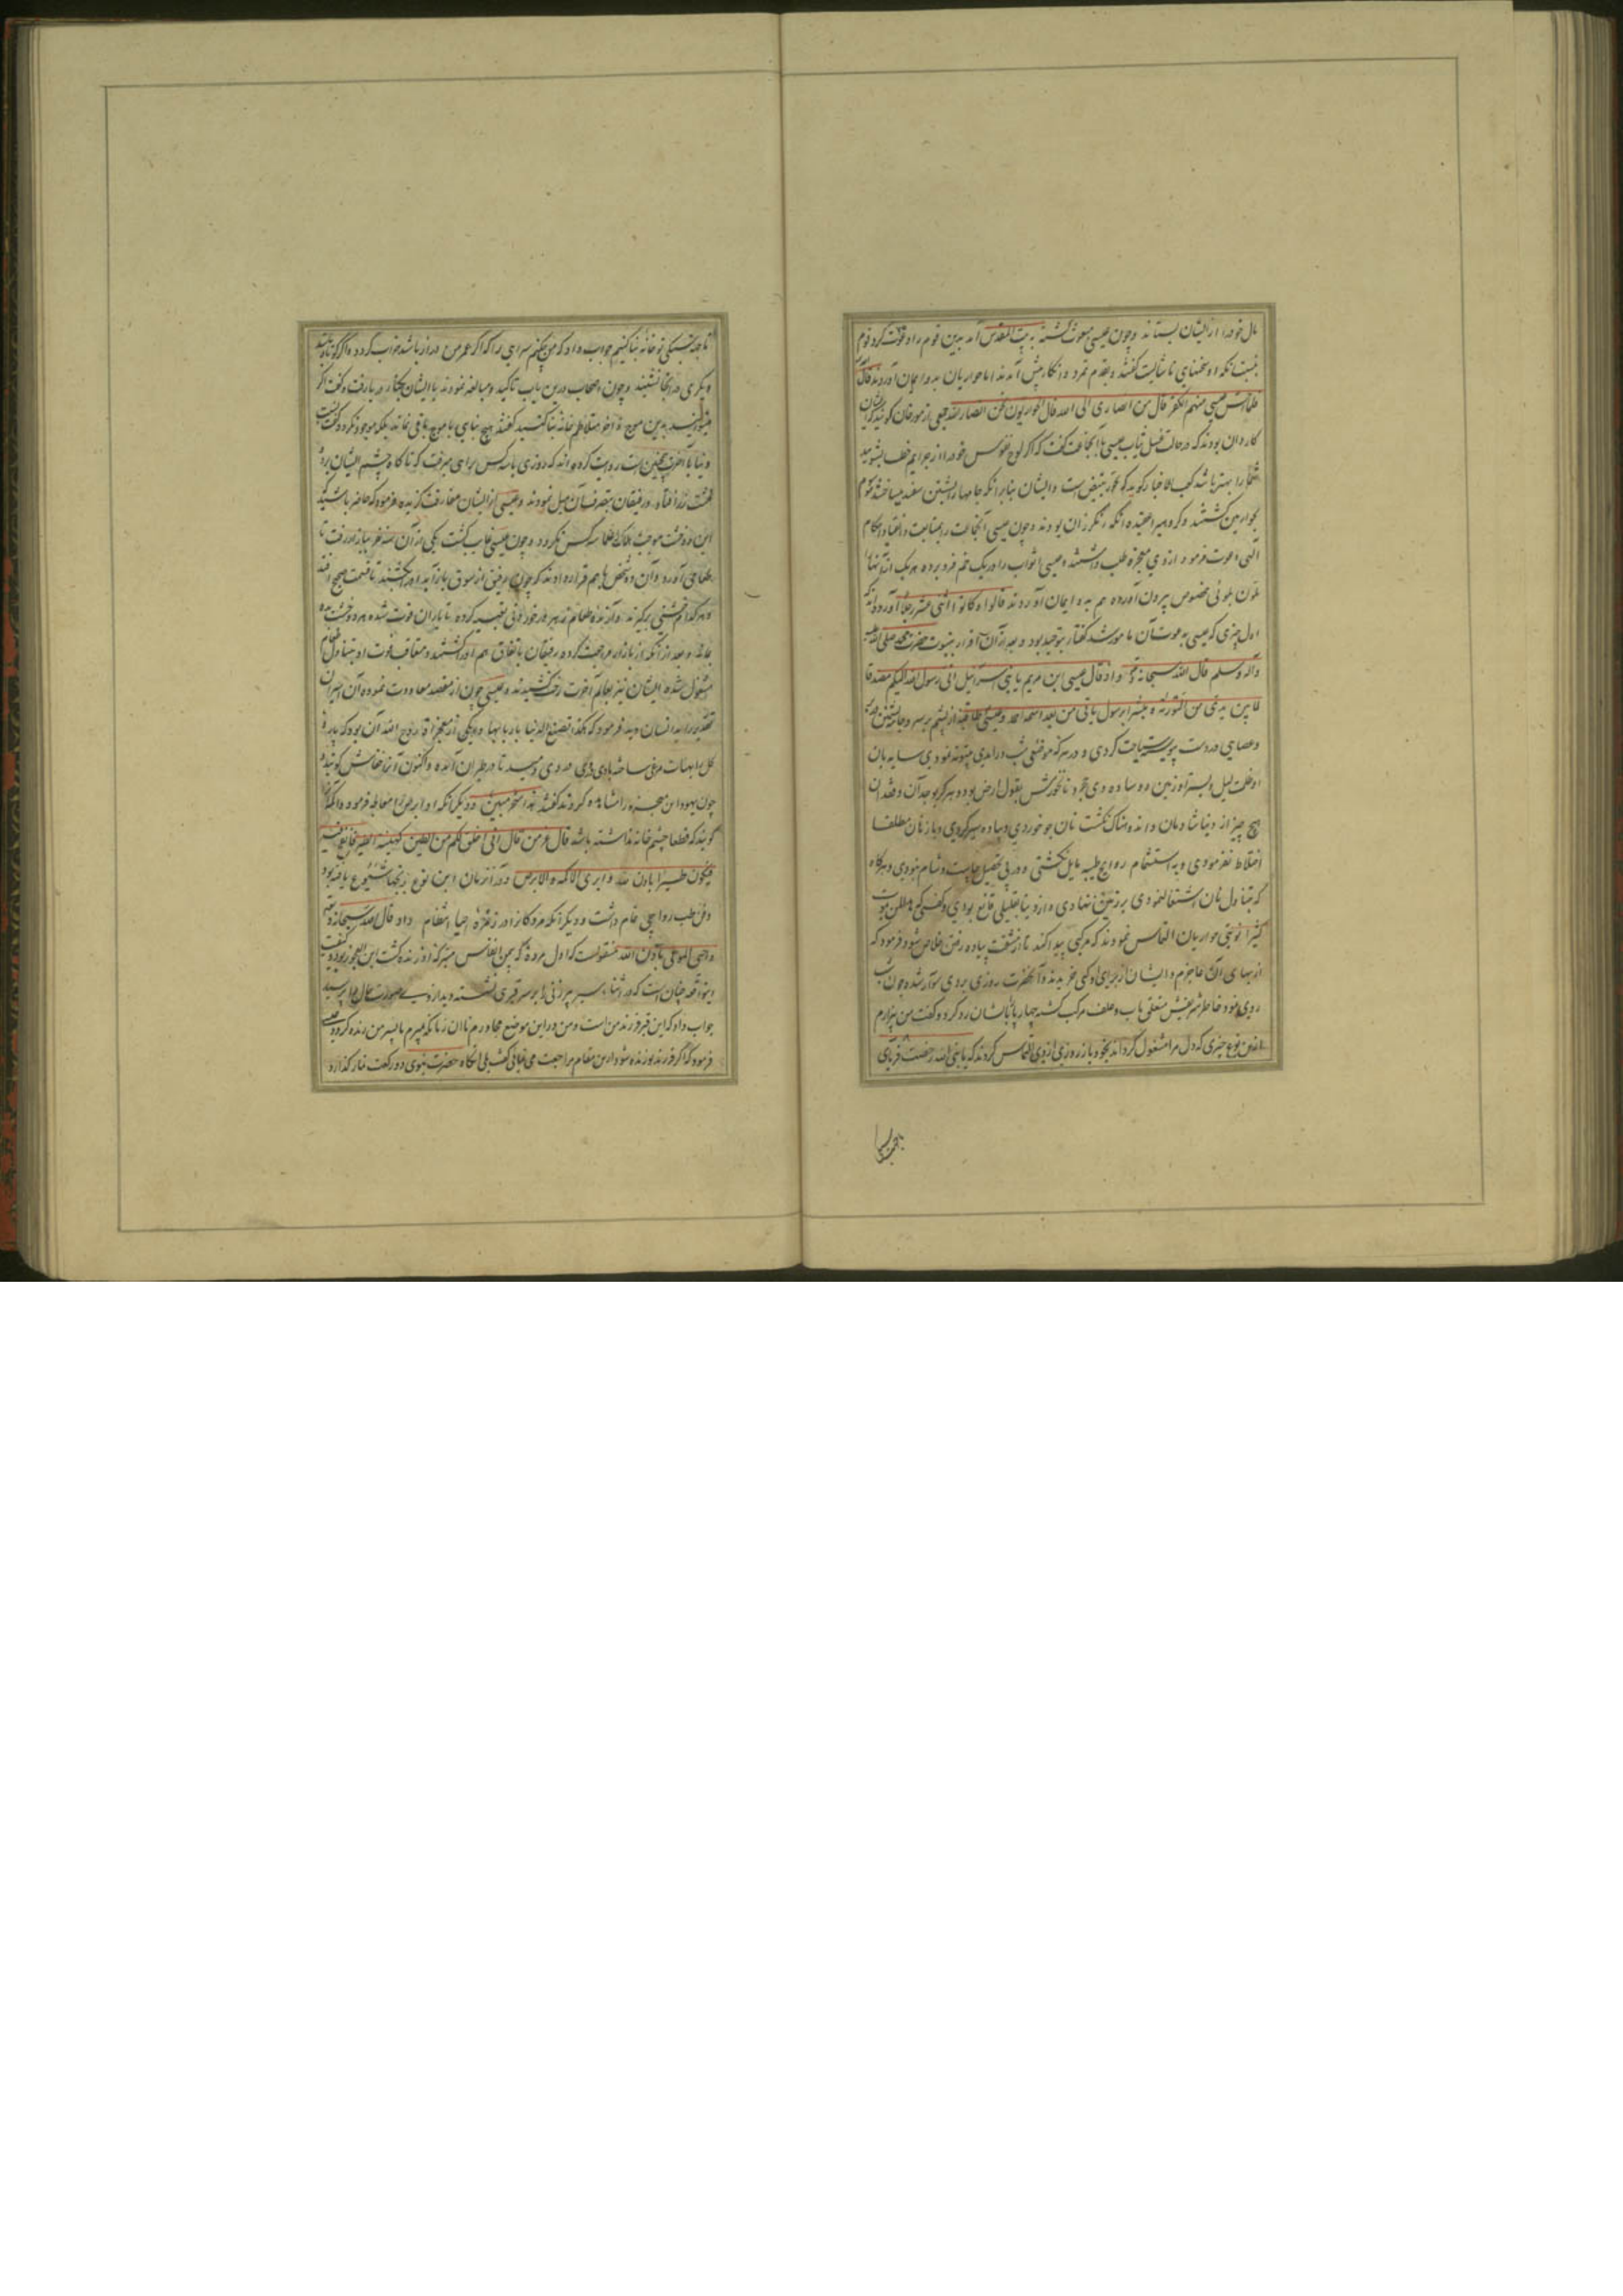 مال خود را از ایشان بستاند و چون عیسی مبعوث گشته به بیت المقدس آمد بدین قوم را دعوت کرد قوم
نسبت بآنکه او سخنهای ناشایست گفتند و بقدم تمرد و انکار پیش آمدند اما حواریان بدو ایمان آوردند قال
فلما احس عیسی منهم الکفر قال من انصاری الی الله قال الحواریون نحن انصار الله جمعی از مورخان گویند که ایشان
کازران بودند که در حالت غسل ثیاب عیسی با آنجماعت گفت که اگر لوح نفوس خود را از جرایم خلف بشویید
شما را بهتر باشد کعب الاخبار گوید که حور تبییض است و ایشان بنابر آنکه جامها را بشستن سفید میساختند موسوم
بحوارین گشتند و گروهی را عقیده آنکه رنگرزان بودند و چون عیسی آنجماعت را بمتابعت و انقیاد احکام
الهی دعوت فرمود از وی معجزه طلب داشتند و عیسی اثواب را در یک خم فرو برده هر یک از آنها را
بلون بلونی مخصوص بیرون آورده همه بدو ایمان آوردند قالوا و کانوا اثنی عشر رجلا آورده‌اند که
اول چیزی که عیسی بدعوت آن مامور شد گفتار بتوحید بود و بعد از آن اقرار بنبوت حضرت محمد صلی الله علیه
وآله وسلم قال الله سبحانه و اذ قال عیسی ابن مریم یا بنی اسرائیل انی رسول الله الیکم مصدقا
لما بین یدی من التوریة و مبشرا برسول یاتی من بعد اسمه احمد و عیسی طاقیه از پشم بر سر و جامه پشمین در بر
و عصایی در دست پیوسته سیاحت کردی و در هر که موضعی شب در آمدی بیتوته نمودی سایه بان
او ظلمت لیل و بستر او زمین و وساده وی حجر و نانخورشش بقول ارض بود و هرگز بوجدان و فقدان
هیچ چیز از دنیا شادمان و اندوهناک نگشت نان جو خوردی و پیاده سیر کردی و با زنان مطلقا
اختلاط نفرمودی و به استشمام روایح طیبه مایل نگشتی و در پی تحصیل چاشت و شام نبودی و هرگاه
که بتناول نان اشتغال نمودی بر زمین نهادی و از دنیا بقلیلی قانع بودی و گفتی که
کثیرا نوبتی حواریان التماس نمودند که مرکبی پیدا کند تا از مشقت پیاده رفتن خلاص شود فرمود که
از بهای آن عاجزم و ایشان از برای او مرکبی خریدند و آنحضرت روزی بر وی سوار شده چون شب
روی نمود خاطر شریفش متعلق بآب و علف مرکب گشته چهارپا بایشان رد کرد و گفت من بیزارم
ازین نوع چیزی که دل مرا مشغول گرداند بخود باز روزی از وی التماس کردند که یا نبی الله رخصت فرمای
تا جهت سکنی تو خانه بنا کنیم جواب داد که من چکنم سرایی را که اگر عمر من دراز باشد خراب گردد و اگر کوتاه باشد
دیگری در آنجا نشیند و چون اصحاب درین باب تاکید و مبالغه نمودند با ایشان بکنار دریا رفت و گفت اگر
میتوانید بدین موج متلاطم خانه بنا کنید گفتند هیچ بنایی با موج باقی نماند بلکه موجود نگردد گفت نسبت
دنیا با آخرت همچنین است روایت کرده‌اند که روزی با سه کس براهی میرفت که ناگاه چشم ایشان بر دو
خشت زر افتاد رفیقان بتصرف آن میل نمودند و عیسی از ایشان مفارقت گزیده فرمود که حاضر باشید که
این دو خشت موجب هلاک شما سه کس نگردد و چون عیسی غایب گشت یکی از آن سه نفر ببازار رفت تا
طعامی آورد و آن دو شخص باهم قرار دادند که چون رفیق از سوق باز آید او را بکشند تا قسمت صحیح افتد
و هر کدام خشتی برگیرند و آرنده طعام زهر در خوردنی تعبیه کرده تا یاران فوت شده هر دو خشت بدو
بماند و بعد از آنکه از بازار مراجعت کرده رفیقان باتفاق هم او را کشتند و متعاقب فوت او بتناول طعام
مشغول شده ایشان نیز بعالم آخرت رخت کشیدند و عیسی چون از مقصد معاودت نموده آن اسیران
تقدیر را بدانسان دید فرمود که هکذا تصنع الدنیا باربابها و یکی از معجزات روح الله آن بود که پاره
گل را بهیأت مرغی ساخته بادی در وی دمید تا در طیران آمده و اکنون آنرا خفاش گویند و
چون یهود این معجزه را مشاهده کردند گفتند هذا سحر مبین و دیگر آنکه او ابرص را معالجه فرمود و اکمه
گویند که قطعا چشم خانه نداشته باشد قال عز من قال انی اخلق لکم من الطین کهیئة الطیر فانفخ فیه
فیکون طیرا باذن الله و ابری الاکمه و الابرص و در آن زمان این نوع رنجها شیوع یافته بود
و فن طب رواجی تمام داشت و دیگر آنکه مردگان را در زمره احیا انتظام داد قال الله سبحانه و تعالی
و احی الموتی باذن الله منقولست که اول مرده که بیمن انفاس متبرکه او زنده گشت ابن العجوز بود و کیفیت
اینواقعه چنان است که در اثنای سیر پیر زنی را بر سر قبری نشسته دید از وی صورت حال را پرسید
جواب داد که این قبر فرزند من است و من در این موضع مجاورم تا آن زمانکه بمیرم یا پسر من زنده گردد عیسی
فرمود که اگر فرزند تو زنده شود ازین مقام مراجعت می نمایی گفت بلی آنگاه حضرت نبوی دو رکعت نماز گذارد